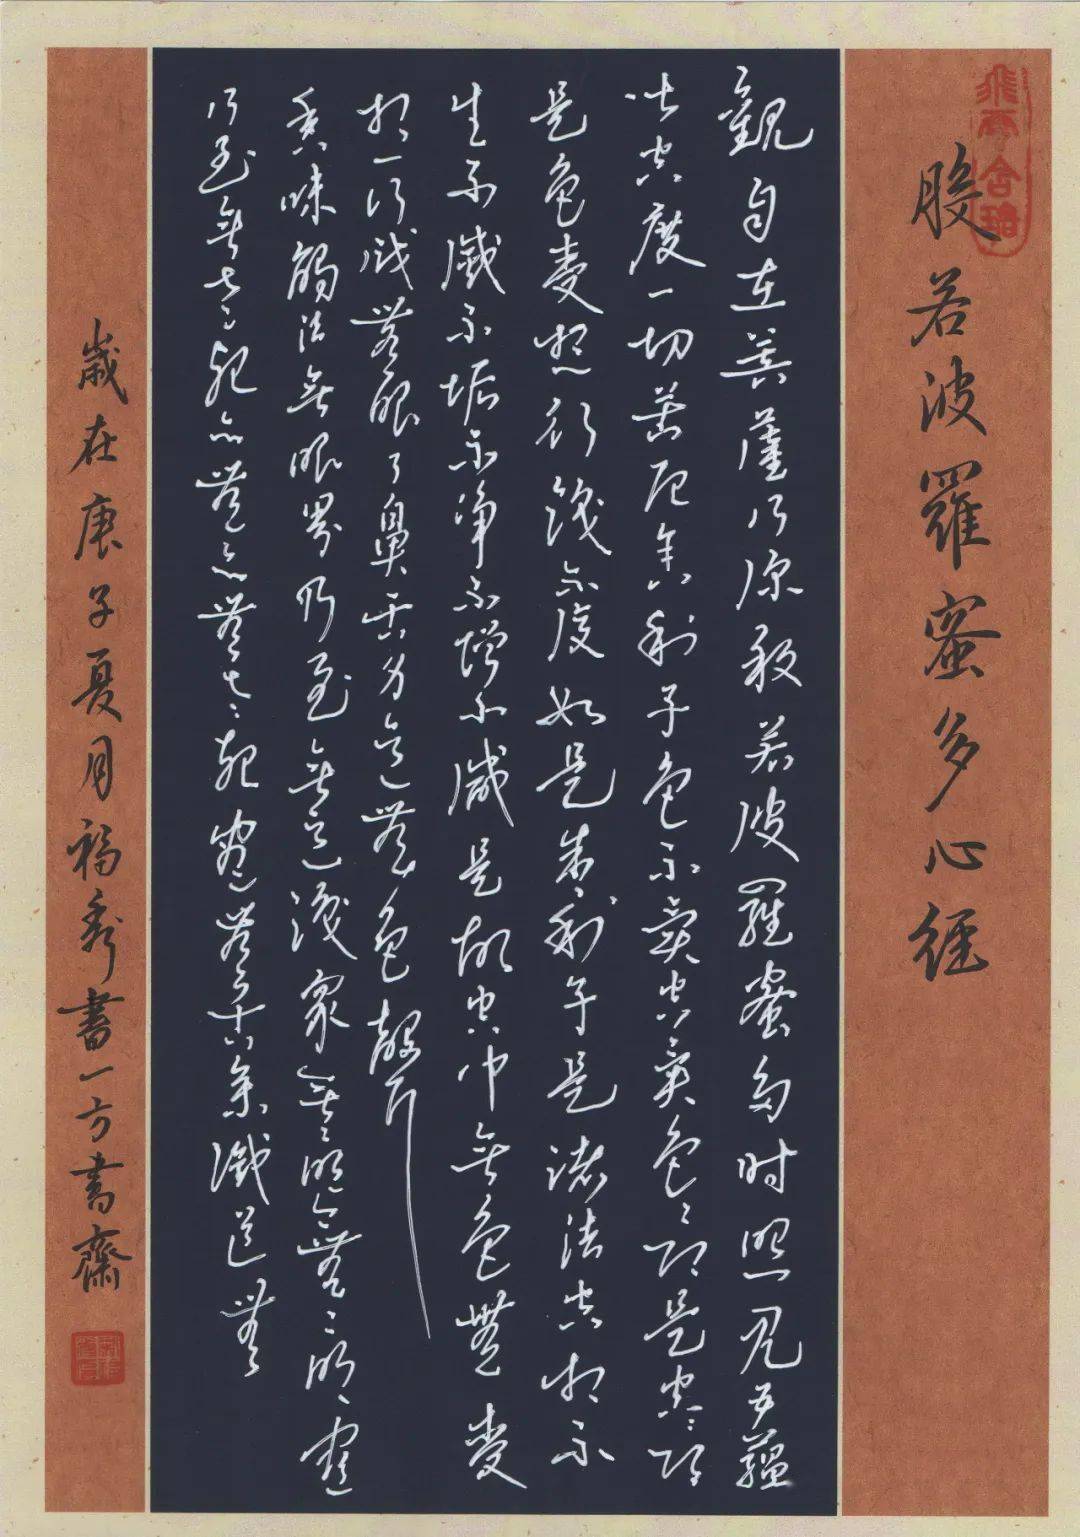 般若波羅蜜多心經
觀自在菩薩行深般若波羅蜜多時照見五蘊
皆空度一切苦厄舍利子色不異空々異色々即是空々即
是色受想行識亦復如是舍利子是諸法空相不
生不滅不垢不淨不增不減是故空中無色無受
想行識無眼耳鼻舌身意無色聲
香味觸法無眼界乃至無意識界無々明亦無々明盡
乃至無老死亦無亦無老死盡無苦集滅道無
歲在庚子夏月福秀書一方書齋